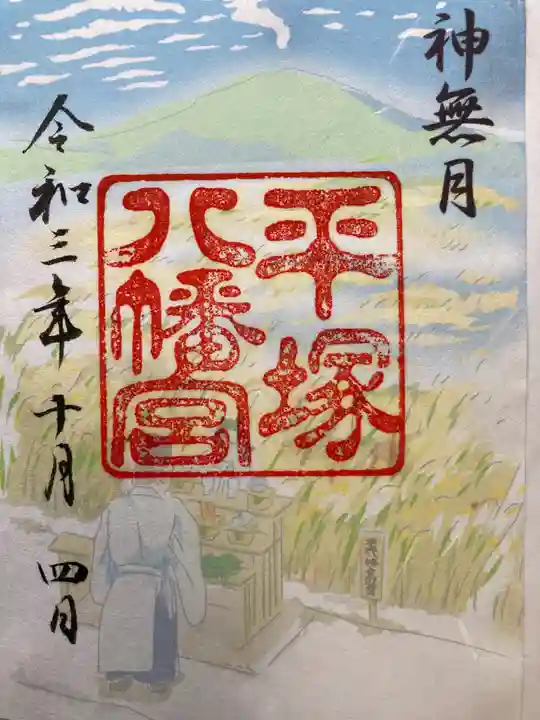 神無月
平塚
八幡宮
令和三年十月四日